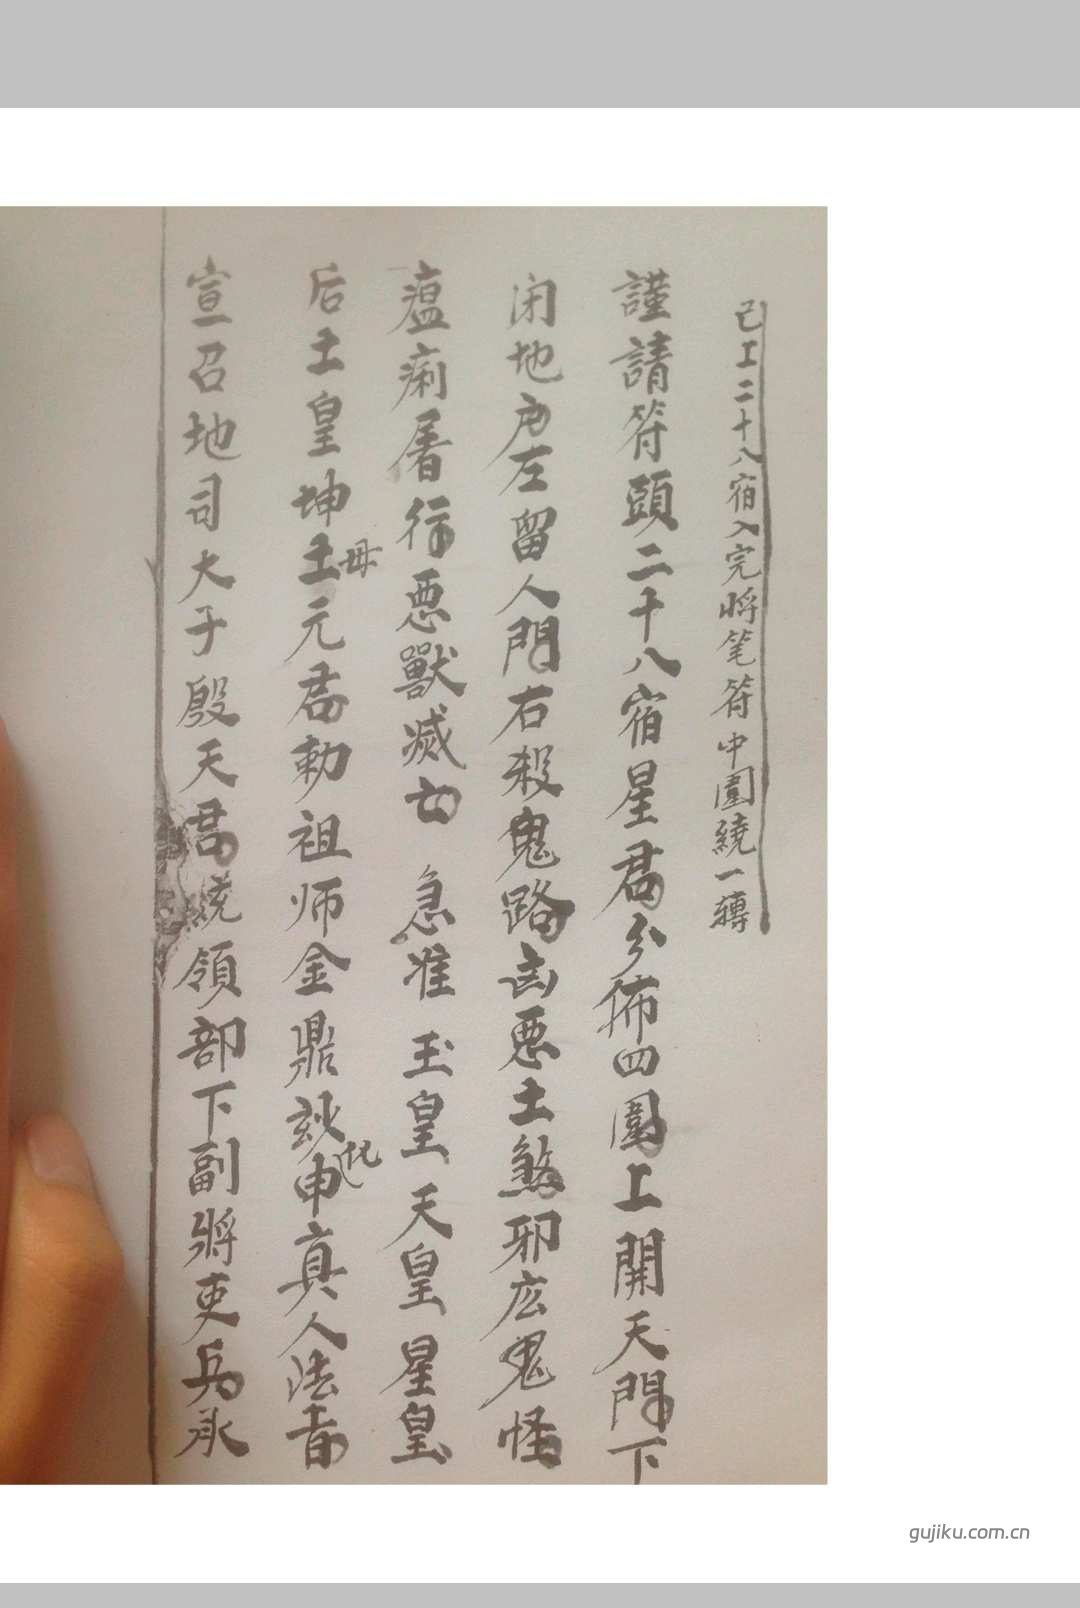 已上二十八宿入完将笔符中圍繞一轉
謹請符頭二十八宿星君分佈四圍上開天門下
闭地户左留人門右殺鬼路凶惡土煞邪庅鬼怪
瘟痢暑行惡獸滅亡 急准 玉皇 天皇 星皇
后土皇坤土母元君勅祖师金鼎玅化申真人法旨
宣召地司大子殷天君统領部下副將吏兵承
gujiku.com.cn